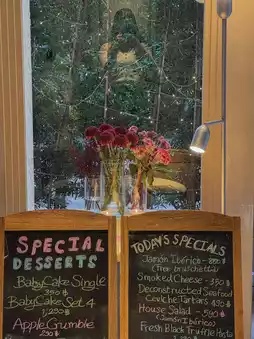 SPECIAL
DESSERTS
BabyCake Single
350 ฿
BabyCake Set 4
1,290 ฿
Apple Crumble
290 ฿
TODAYS SPECIALS
Jamón Ibérico
Smoked Cheese - 350 ฿
Deconstructed Seafood
Ceviche Tartars
House Salad - 580 ฿
(Jamón Ibérico)
Fresh Black Truffle